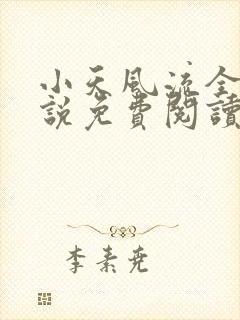 小天風流全
說免費閱讀
李素堯